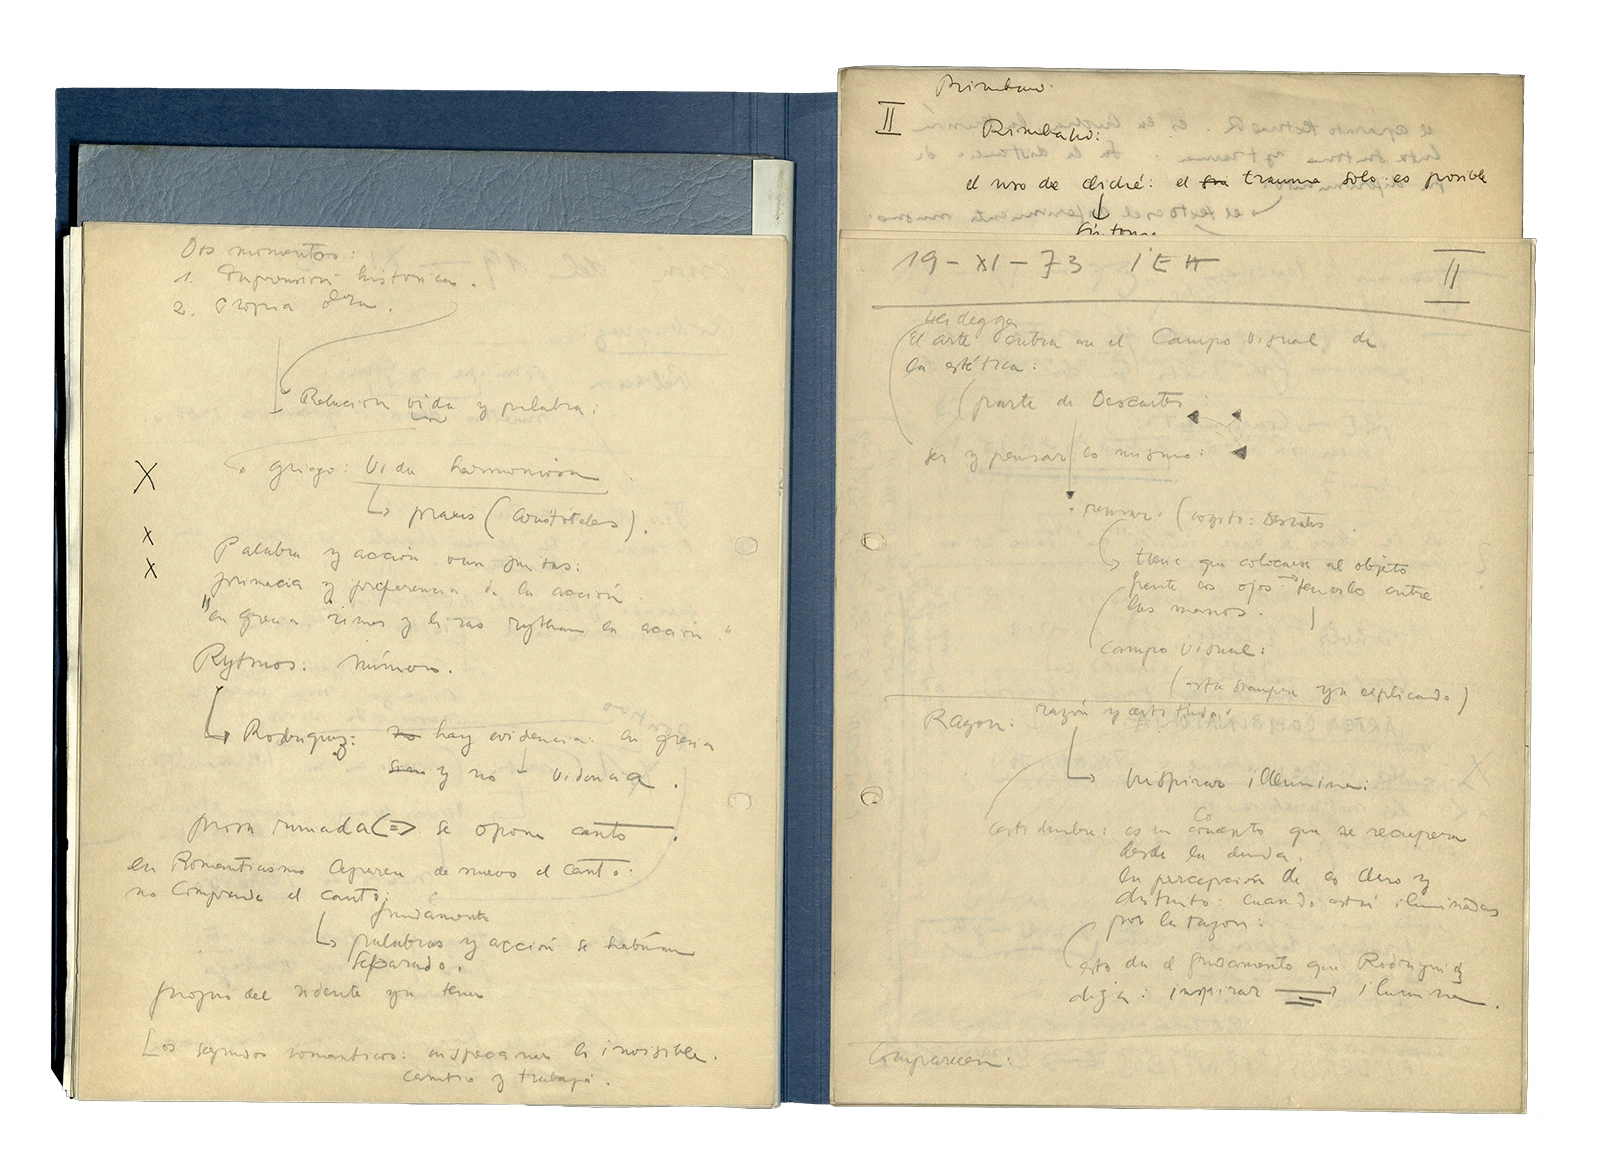 Dos momentos:
1. Supresión histórica.
2. Propia obra.
Relación vida y palabra:
griego: Vida harmoniosa
praxis (Aristóteles).
Palabra y acción van juntas:
primacía y preferencia de la acción.
"en grecia, rimas y liras rythman la acción."
Rytmos: número.
Rodriguez: no hay evidencia: en grecia
sino y no videncia.
prosa rimada (=> se opone canto.
en Romanticismo aparece de nuevo el canto:
no comprende el canto:
fundamento
palabras y acción se habían
separado.
propio del vidente ya
Los segundos romanticos: inspeccionar lo invisible.
cambio y trabajo.
Rimbaud.
II
Rimbaud:
el uso de cliché: el trauma solo es posible
síntoma
19-XI-73 IEH
II
Heidegger
El arte entra en el Campo Visual de
la estética:
(parte de Descartes
ser y pensar es mismo:
pensar: (cogito: Descartes
tiene que colocarse al objeto
frente los ojos → tenerlo entre
las manos.
Campo Visual:
(está siempre ya explicado)
Razon: razón y certitud:
Inspirar illumina:
certidumbre: es un concepto que se recupera
desde la duda.
la percepción de lo claro y
distinto: cuando están iluminadas
por la razon:
esto da el fundamento que Rodriguez
dija: inspirar iluminar.
Comparecen: